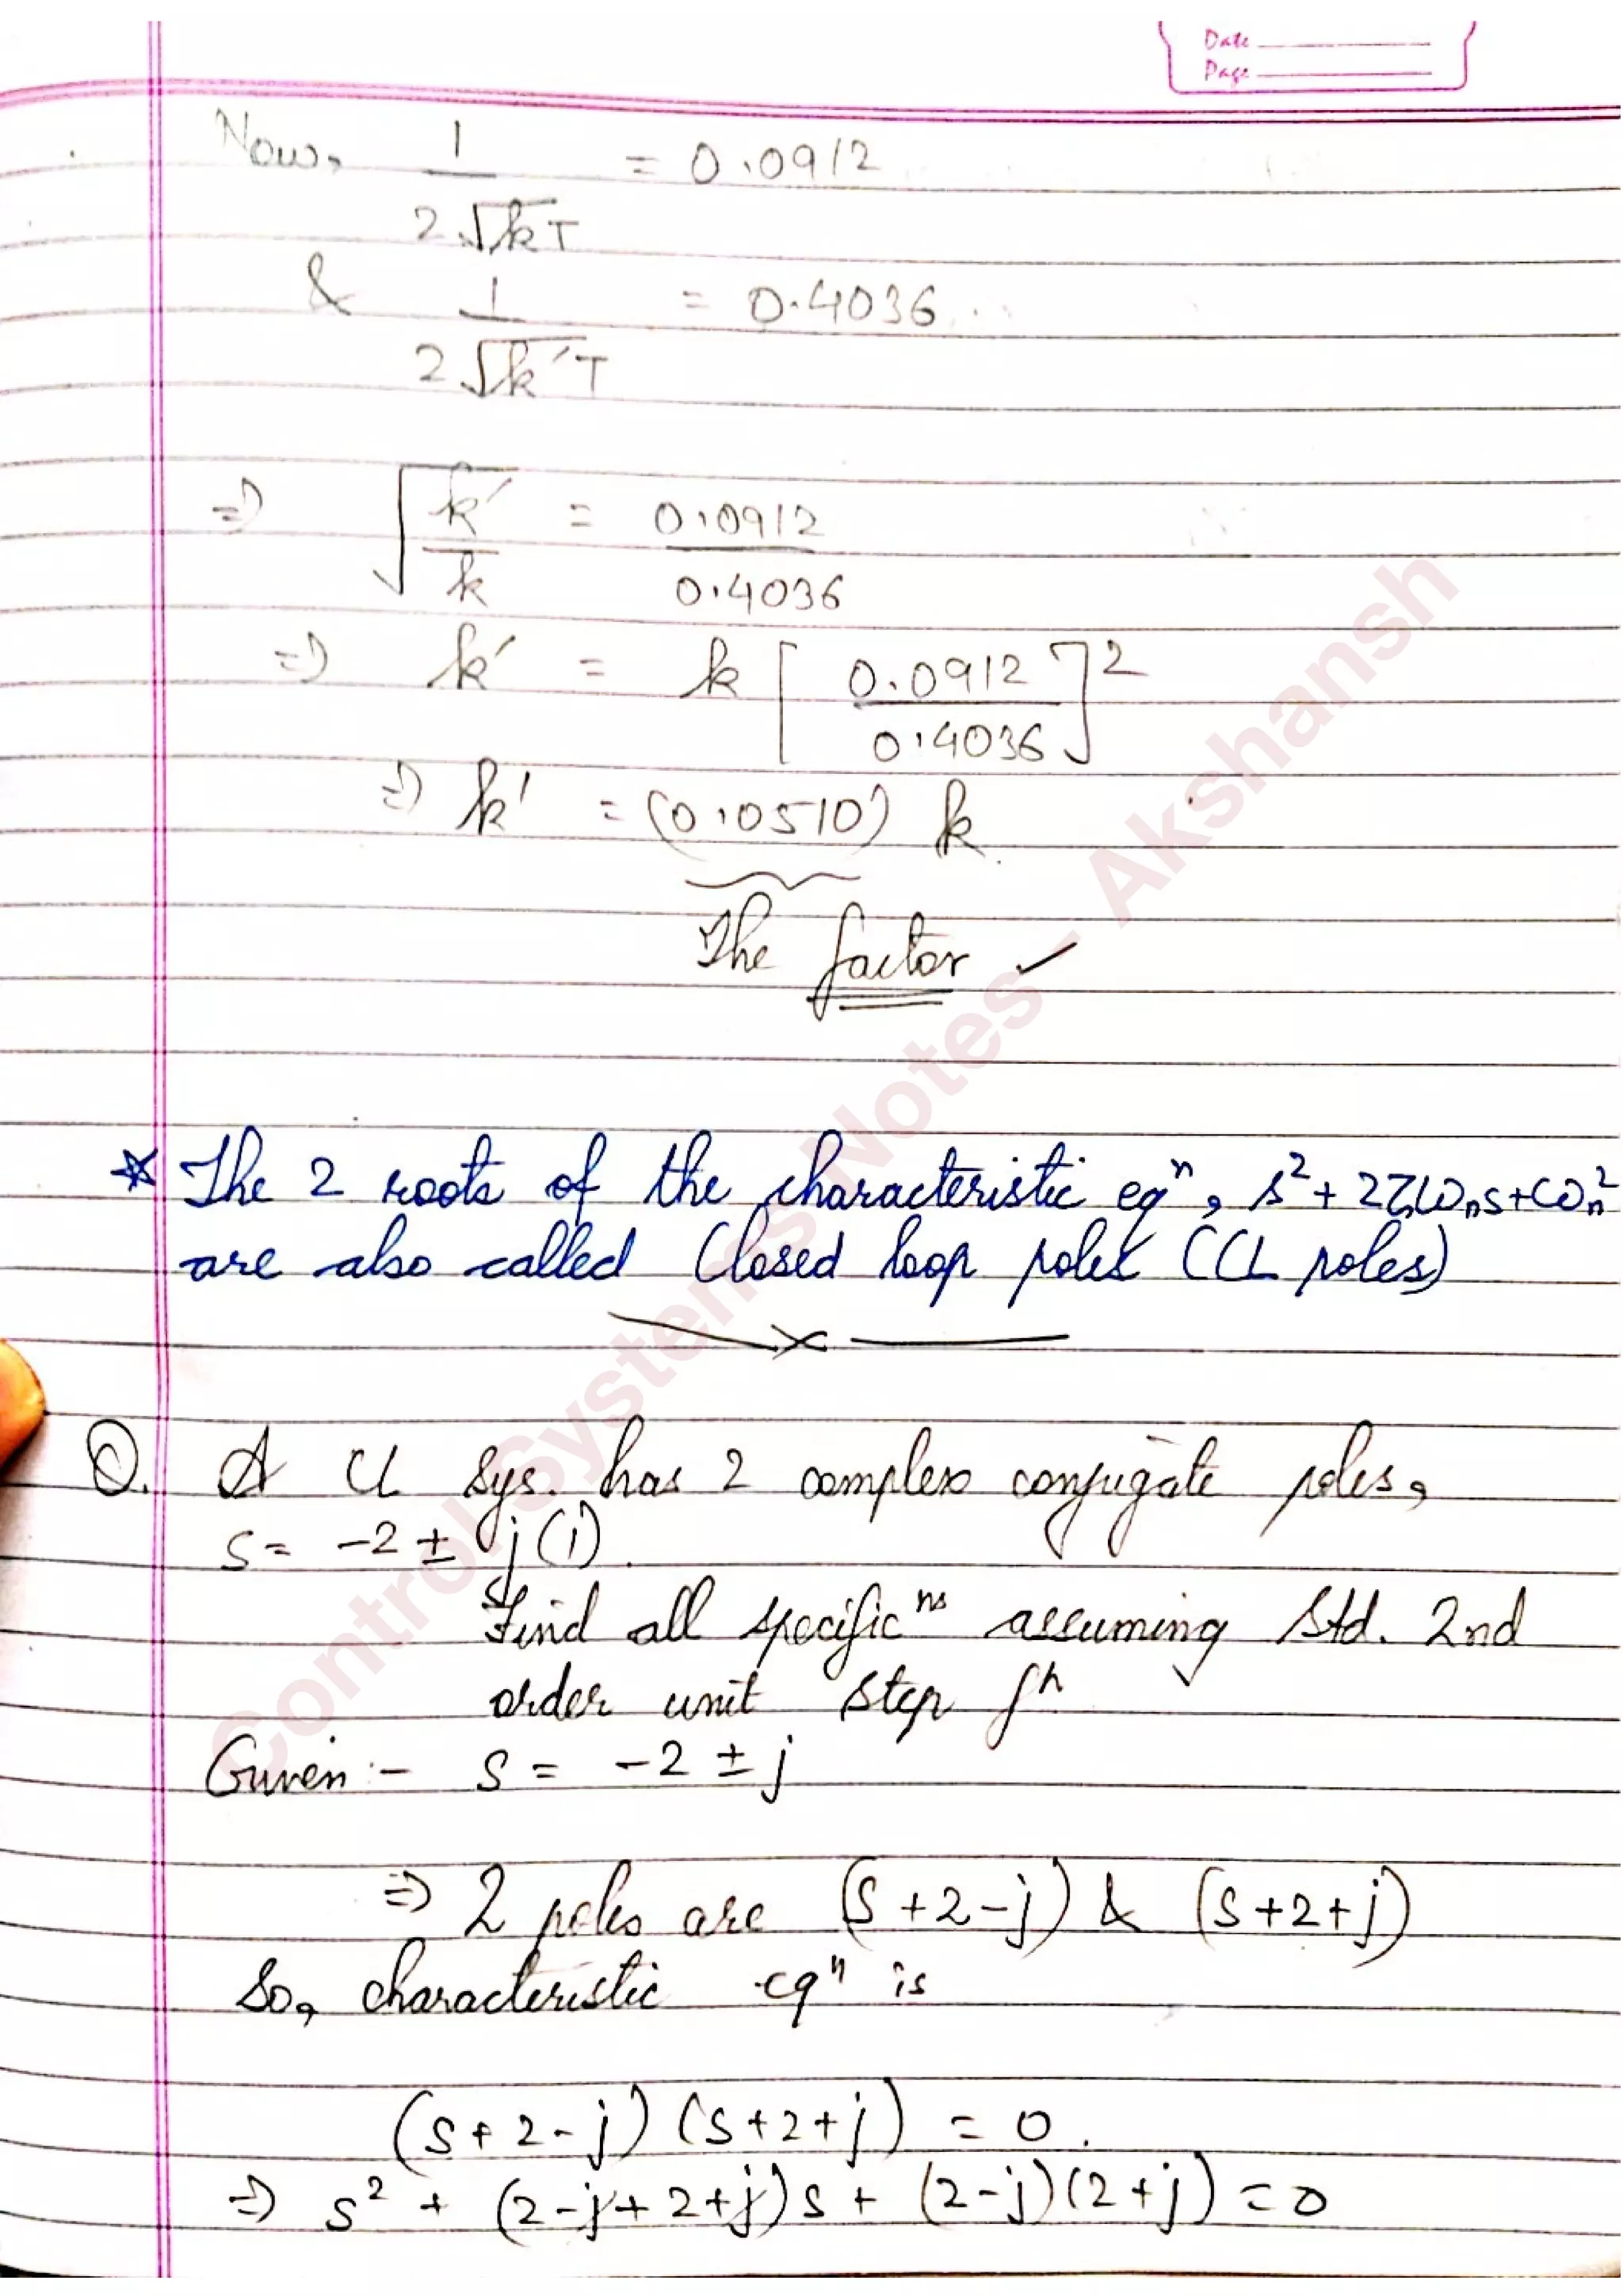 Date
Page
Now, 1/(2√kT) = 0.0912
& 1/(2√k'T) = 0.4036
⇒ √(k'/k) = 0.0912/0.4036
⇒ k' = k [0.0912/0.4036]²
⇒ k' = (0.0510) k
The factor ✓
* The 2 roots of the characteristic eqⁿ, s² + 2ζωₙs + ωₙ²
are also called Closed loop poles (CL poles)
——×——
Q. A CL sys. has 2 complex conjugate poles,
s = -2 ± j(1).
Find all specificⁿˢ assuming Std. 2nd
order unit step fⁿ
Given :- s = -2 ± j
⇒ 2 poles are (s+2-j) & (s+2+j)
So, characteristic eqⁿ is
(s+2-j) (s+2+j) = 0.
⇒ s² + (2-j+2+j)s + (2-j)(2+j) = 0
Control Systems Notes - Akshansh